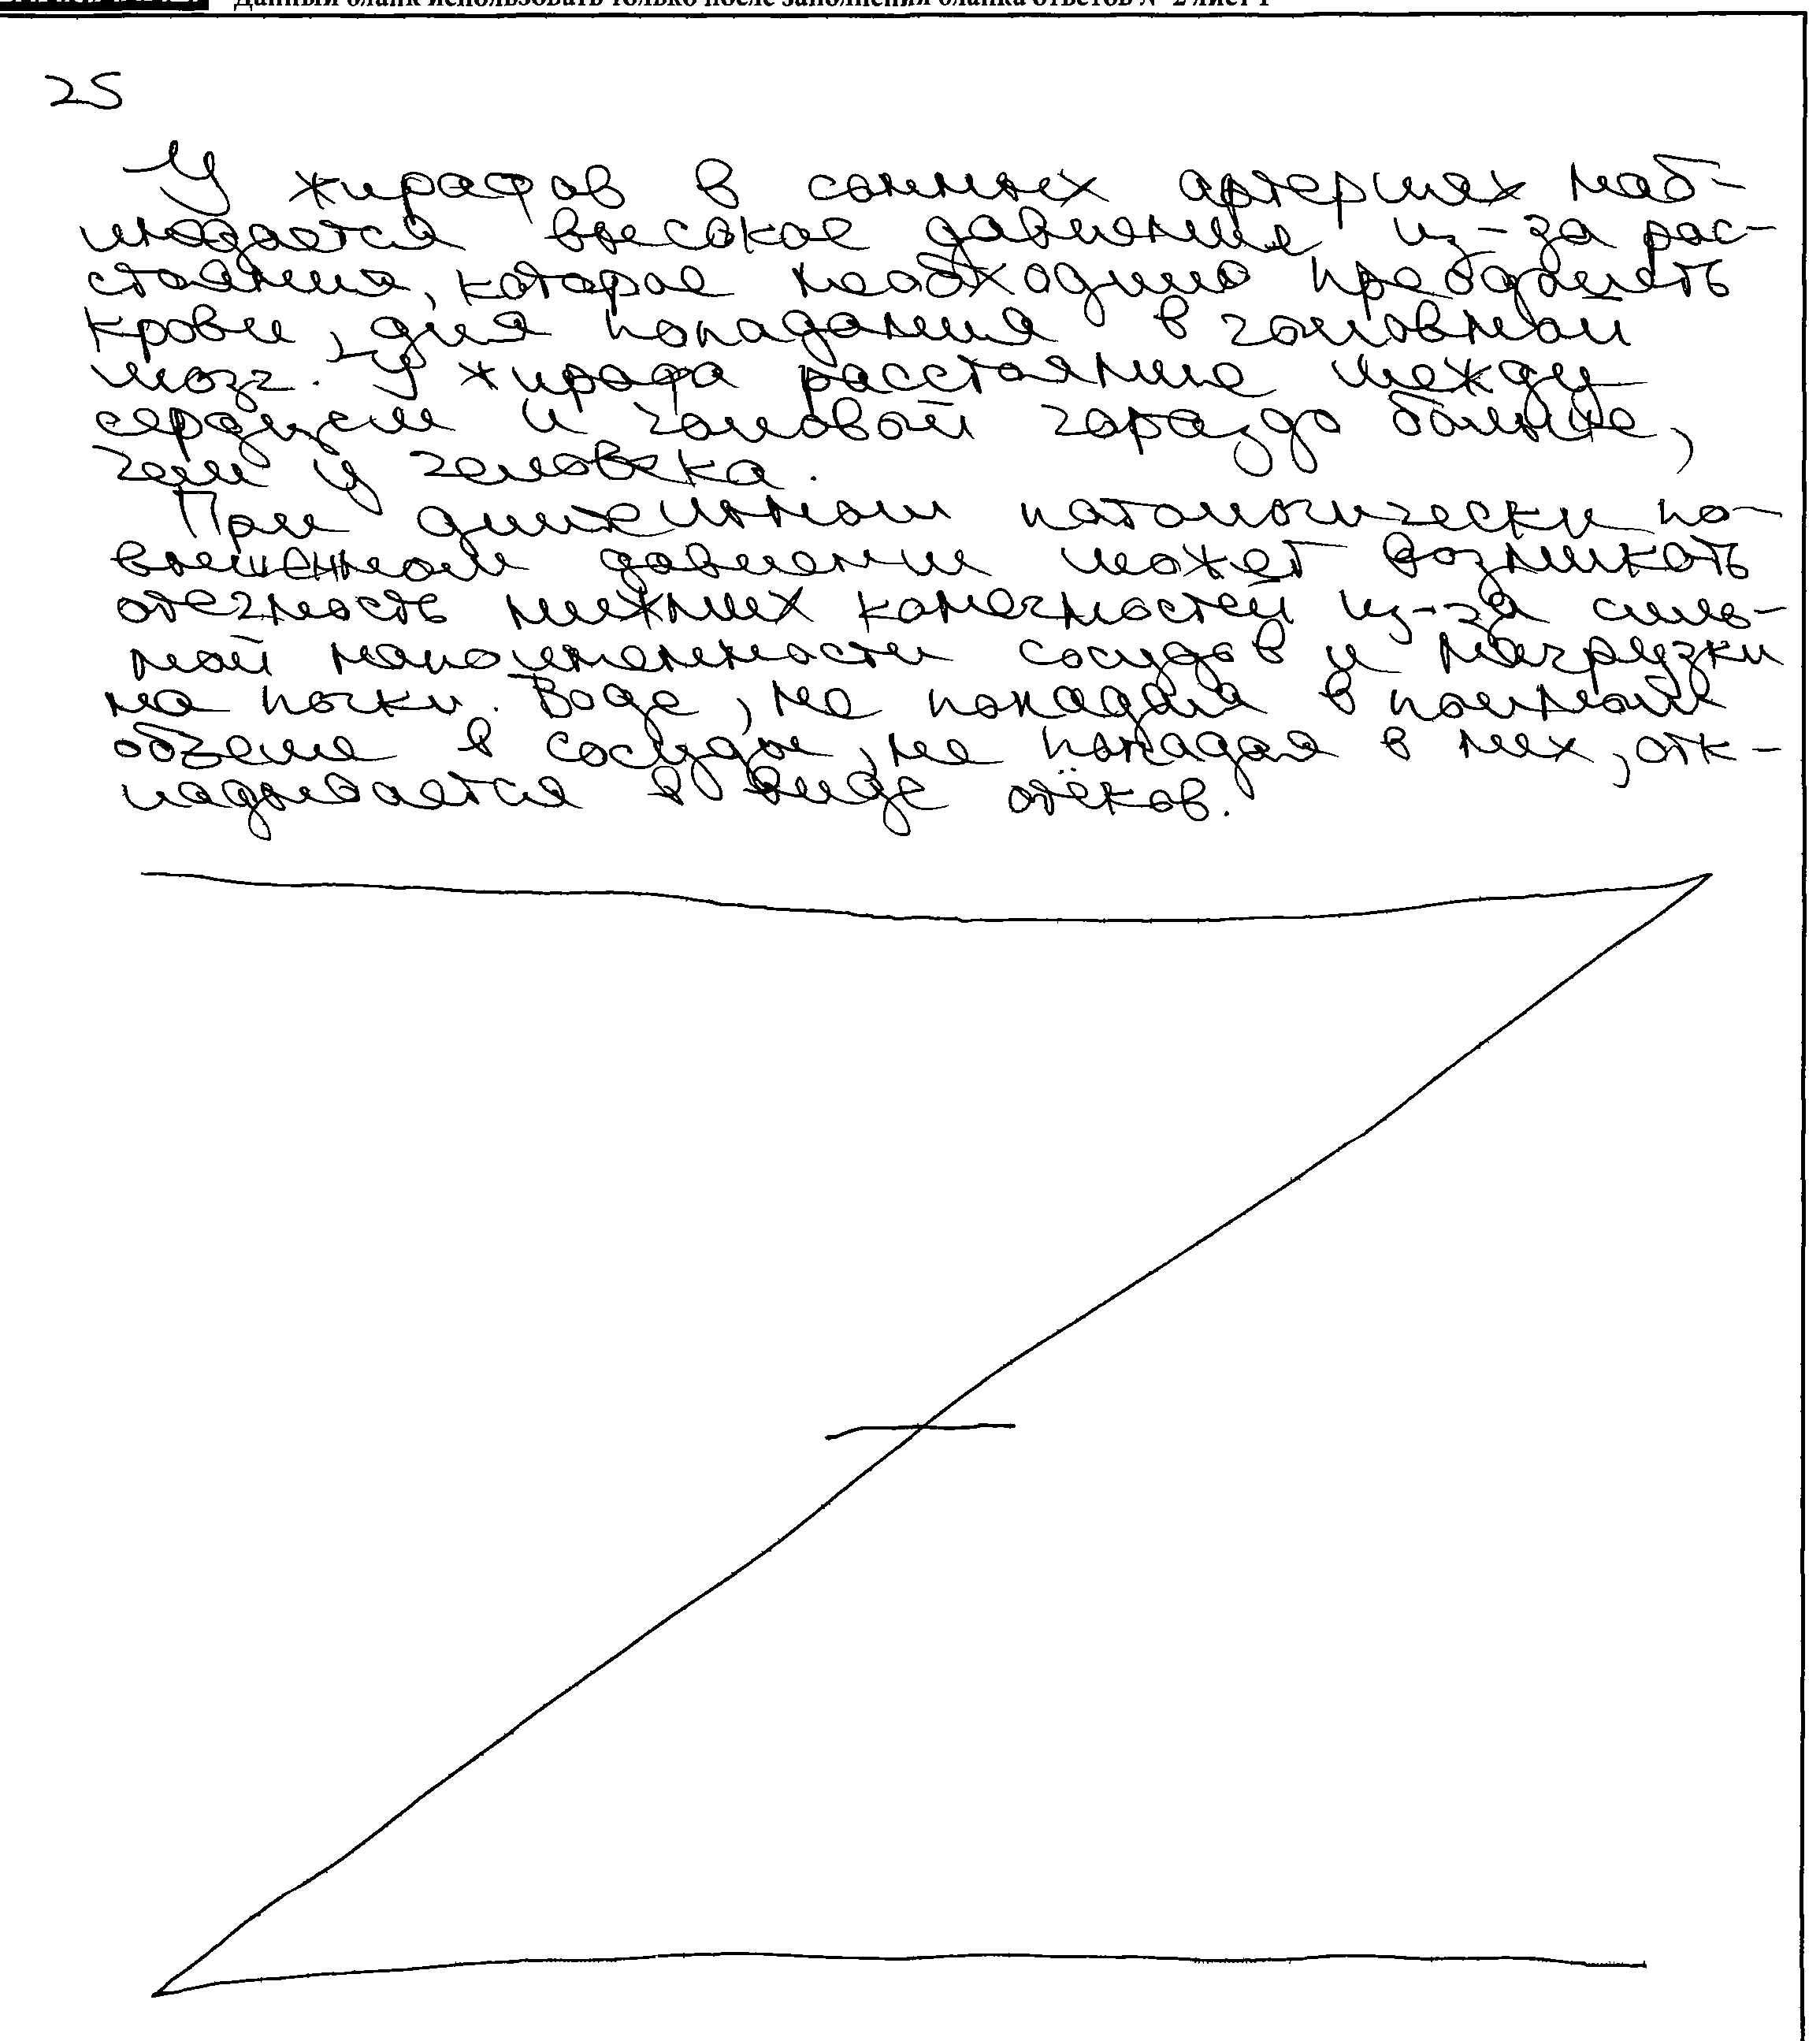 Данный бланк использовать только после заполнения бланка ответов № 2 лист 1
25
У жирафов в сонных артериях наб-
людается высокое давление из-за рас-
стояния, которое необходимо преодолеть
крови, для попадания в головной
мозг. У жирафа расстояние между
сердцем и головой гораздо больше,
чем у человека.
При длительном патологически по-
вышенном давлении может возникать
отечность нижних конечностей из-за силь-
ной наполненности сосудов и нагрузки
на почки. Вода, не попадая в полном
объеме в сосуды, не попадая в них, отк-
ладывается в виде отёков.